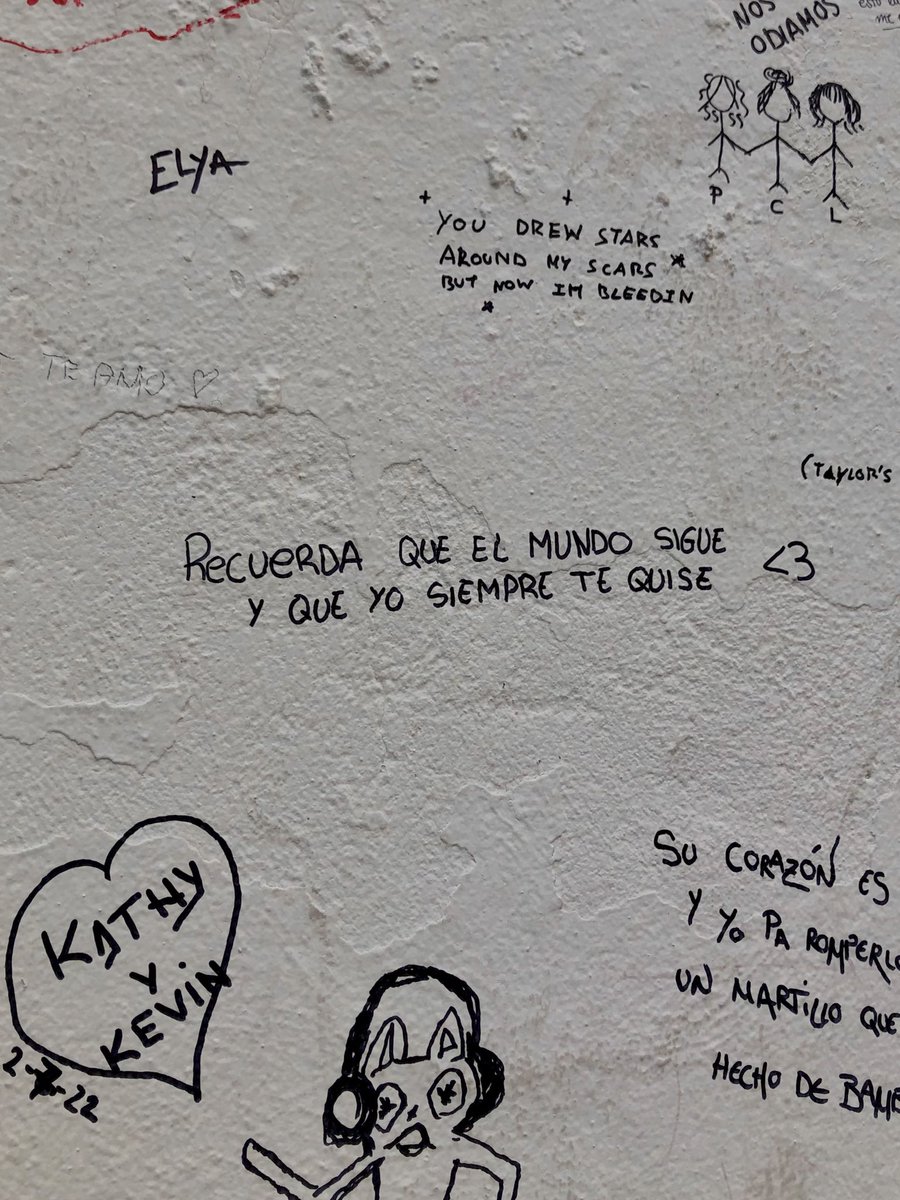 NOS
ODIAMOS
P C L
ELYA
YOU DREW STARS
AROUND MY SCARS
BUT NOW IM BLEEDIN
TE AMO ♡
(TAYLOR'S
RECUERDA QUE EL MUNDO SIGUE <3
Y QUE YO SIEMPRE TE QUISE
SU CORAZÓN ES
Y YO PA ROMPERLO
UN MARTILLO QUE
HECHO DE BAMB
KATHY
Y
KEVIN
2-7-22